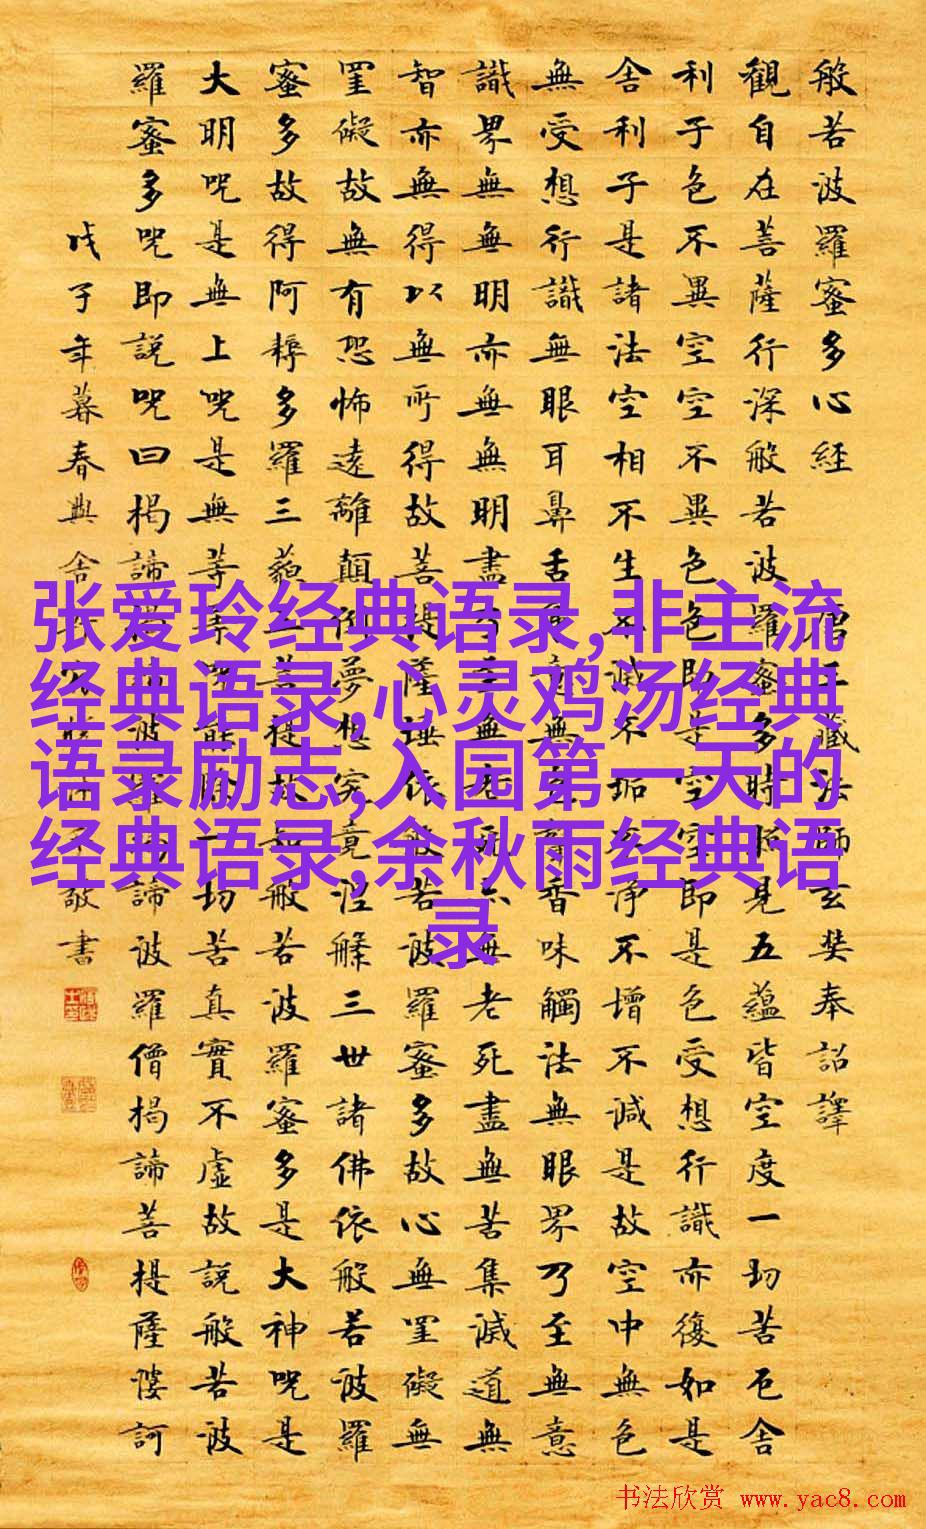 般若波羅蜜多心經 唐三藏法師玄奘奉詔譯
觀自在菩薩行深般若波羅蜜多時照見五蘊皆空度一切苦厄舍
利子色不異空空不異色色即是空空即是色受想行識亦復如是
舍利子是諸法空相不生不滅不垢不淨不增不減是故空中無色
無受想行識無眼耳鼻舌身意無色聲香味觸法無眼界乃至無意
識界無無明亦無無明盡乃至無老死亦無老死盡無苦集滅道無
智亦無得以無所得故菩提薩埵依般若波羅蜜多故心無罣礙無
罣礙故無有恐怖遠離顛倒夢想究竟涅槃三世諸佛依般若波羅
蜜多故得阿耨多羅三藐三菩提故知般若波羅蜜多是大神咒是
大明咒是無上咒是無等等咒能除一切苦真實不虛故說般若波
羅蜜多咒即說咒曰揭諦揭諦波羅揭諦波羅僧揭諦菩提薩婆訶
戊子年暮春 敬書
张爱玲经典语录,非主流
经典语录,心灵鸡汤经典
语录励志,入园第一天的
经典语录,余秋雨经典语
录
书法欣赏 www.yac8.com